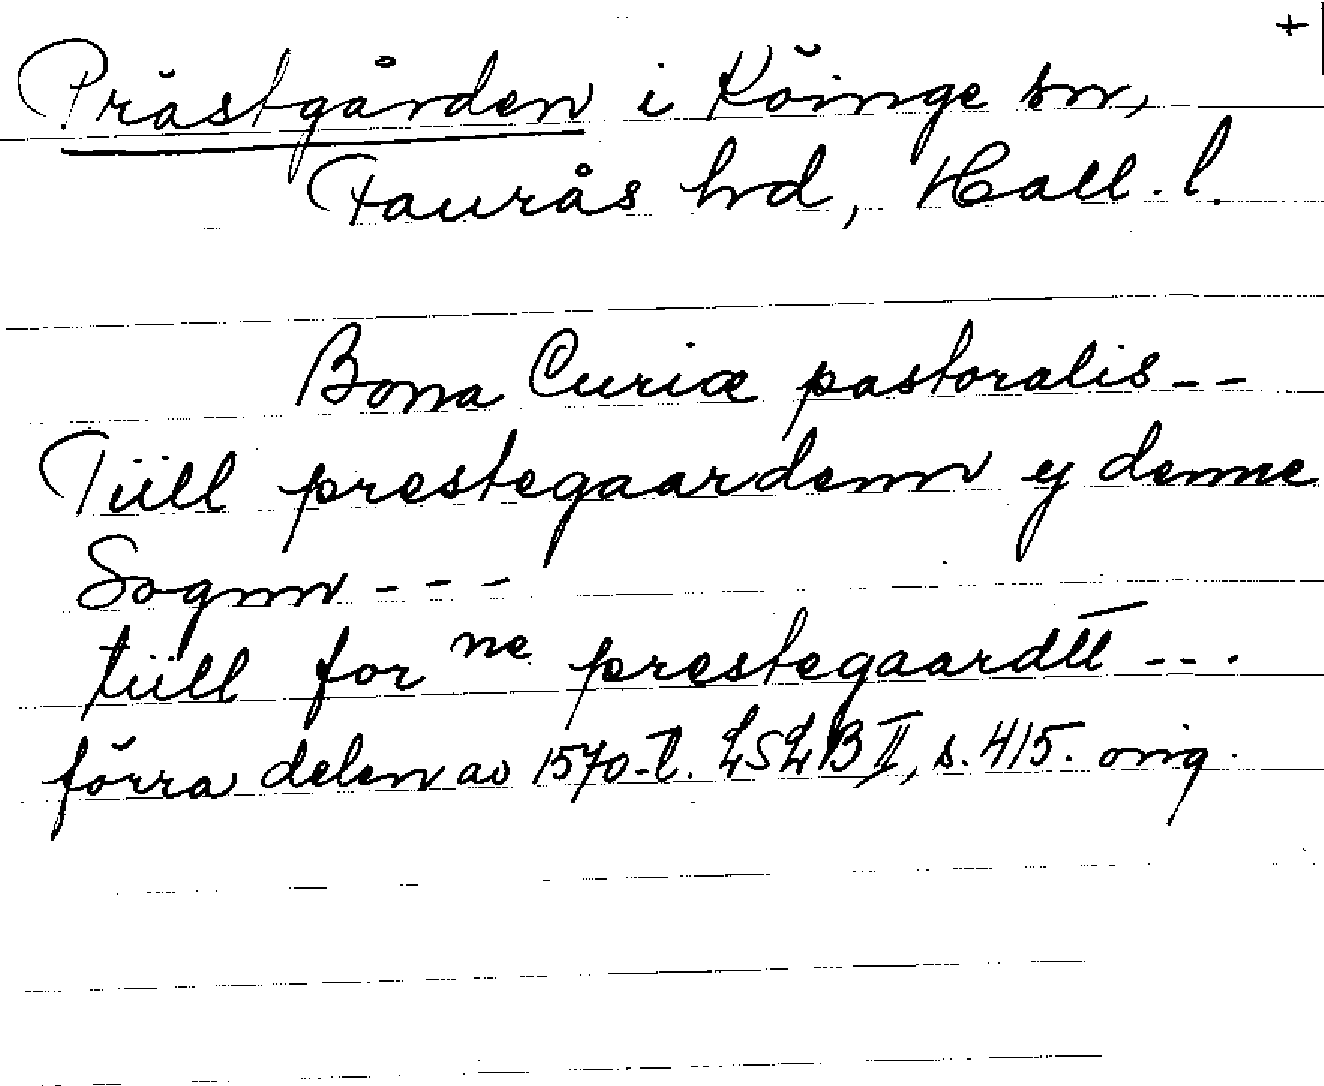 +
Prästgården i Köinge sn,
Faurås hrd, Hall. l.
Bona Curiæ pastoralis--
Tüll prestegaardenn ej denne
Sognn ---
tüll for ne prestegaardtt ---
förra delen av 1570-t. LSLB II, s. 415. orig.